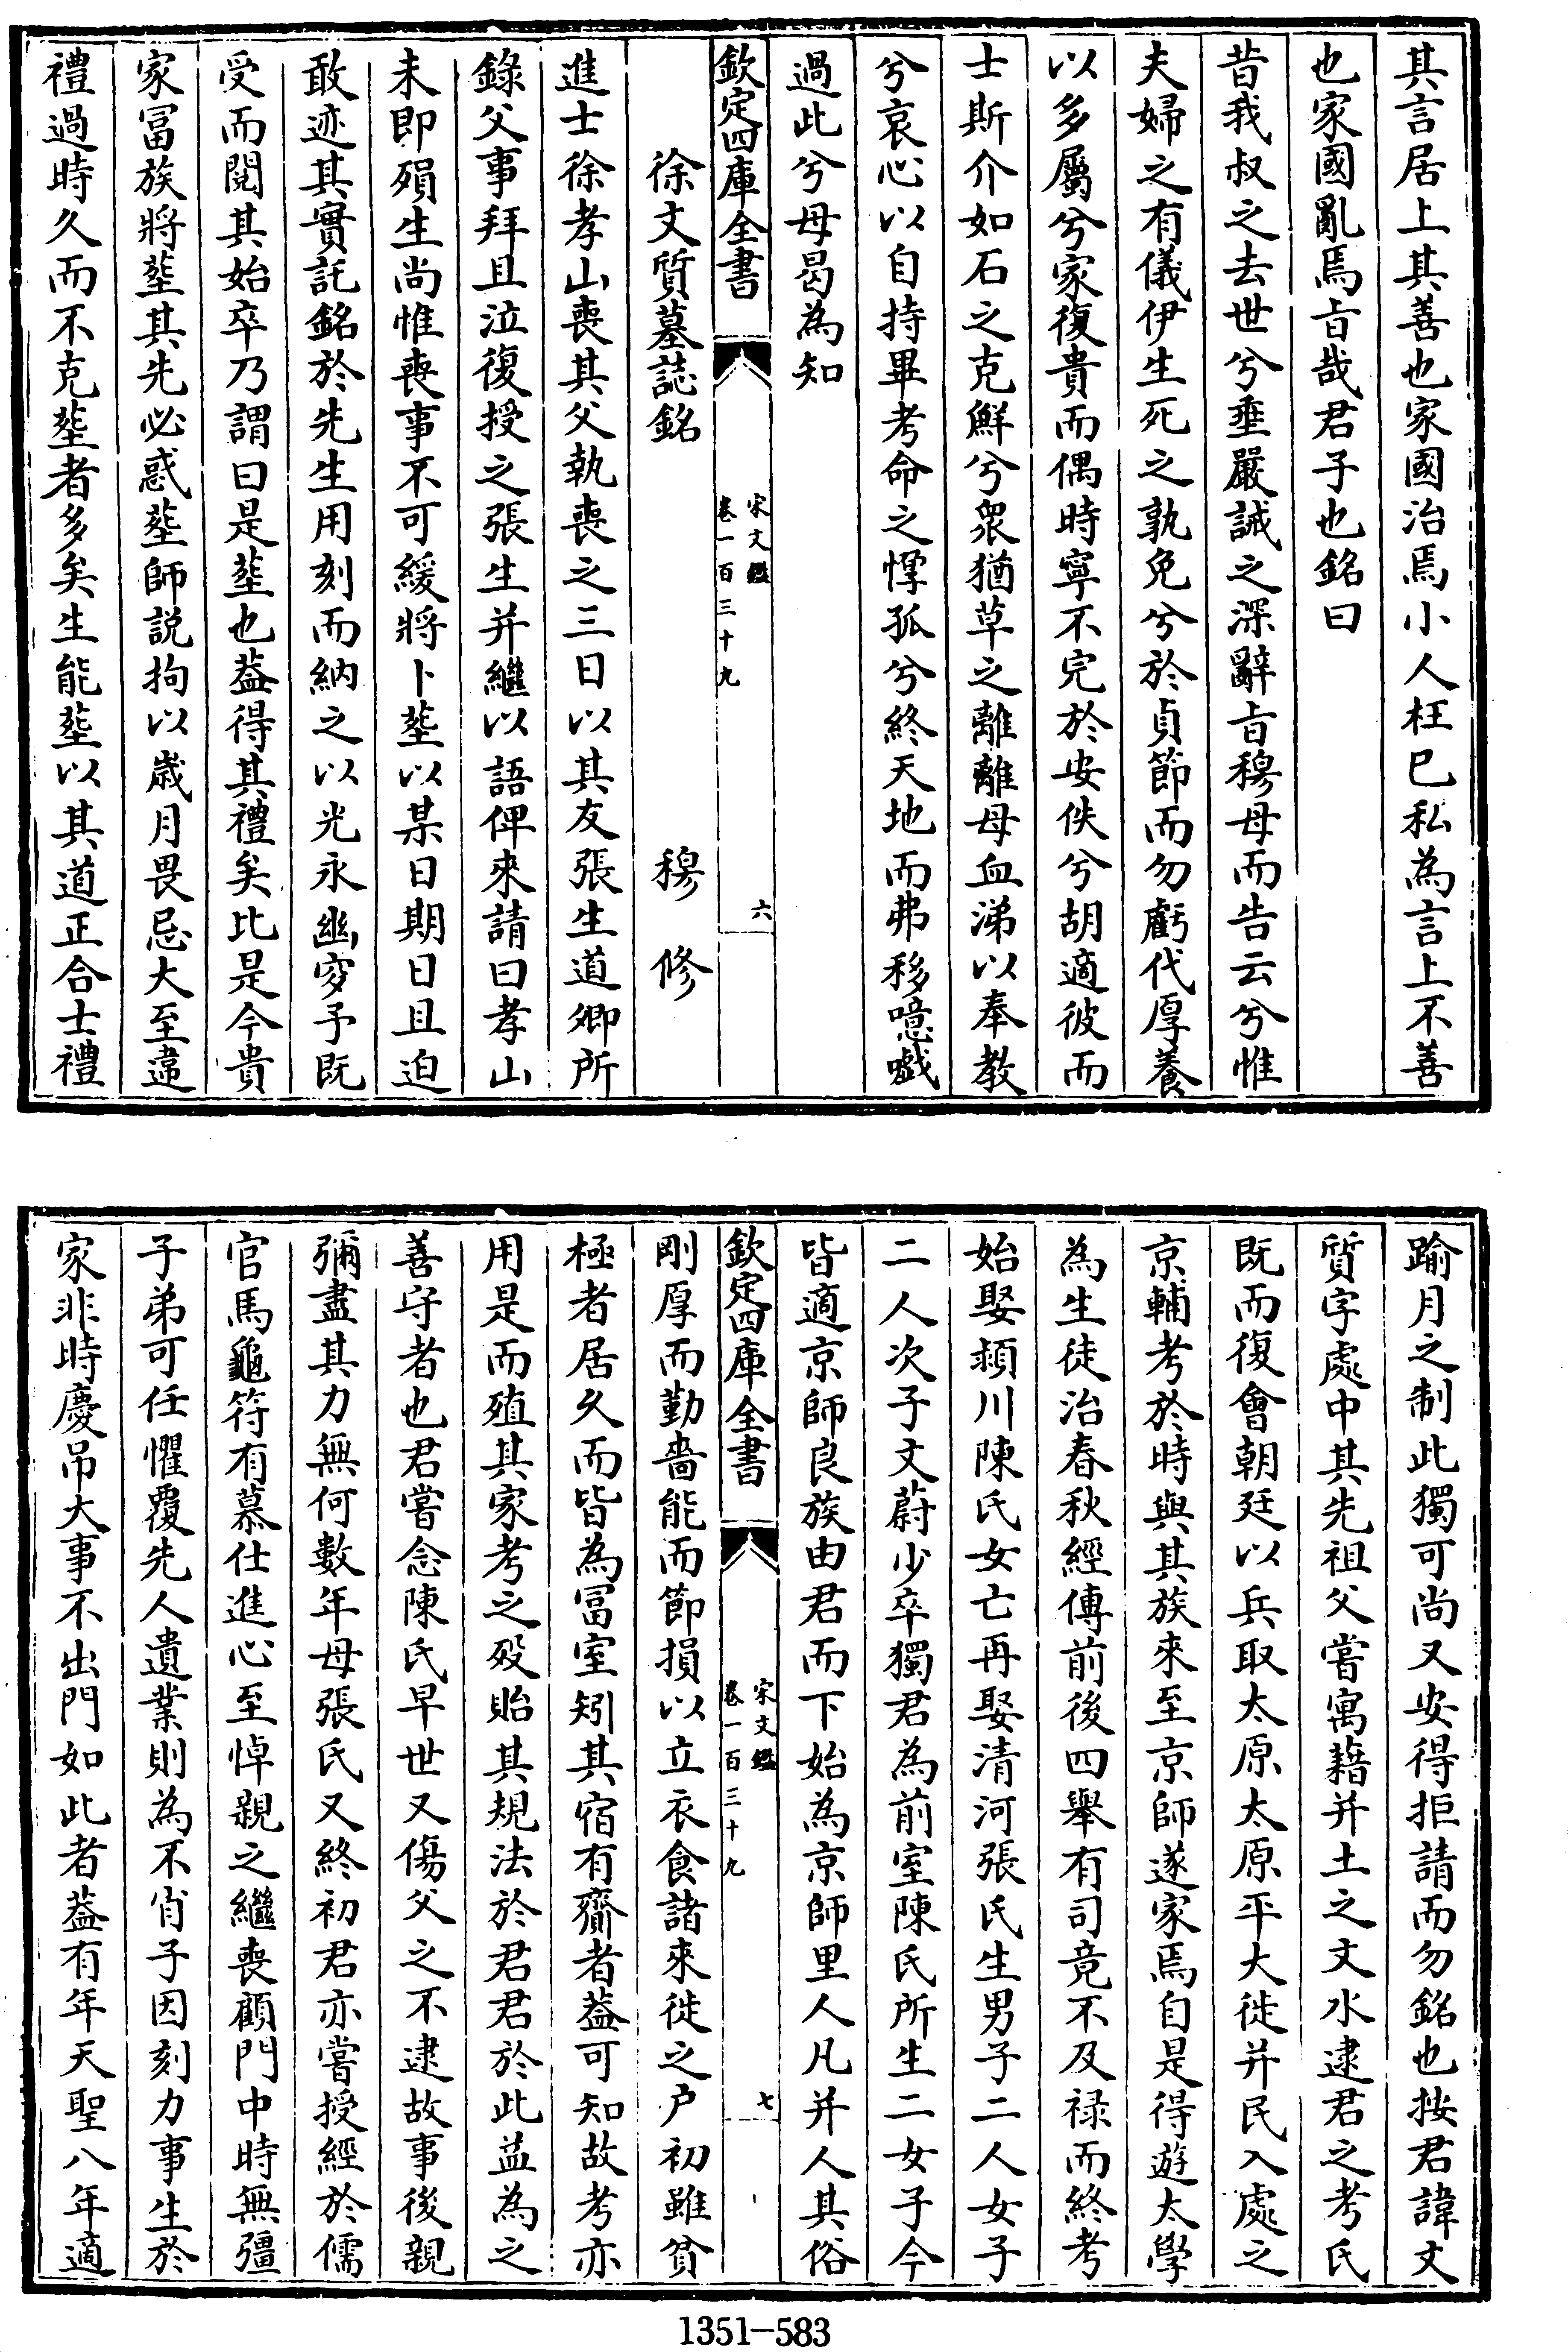 其言居上其善也家國治焉小人枉已私為言上不善
也家國亂焉旨哉君子也銘曰
昔我叔之去世兮垂嚴誡之深辭旨穆母而告云兮惟
夫婦之有儀伊生死之孰免兮於貞節而勿虧代厚養
以多屬兮家復貴而偶時寧不完於安佚兮胡適彼而
士斯介如石之克鮮兮衆猶草之離離母血涕以奉教
兮哀心以自持畢考命之惸孤兮終天地而弗移噫戲
過此兮母曷為知
欽定四庫全書
宋文鑑
卷一百三十九
六
徐文質墓誌銘 穆修
進士徐孝山喪其父執喪之三日以其友張生道卿所
錄父事拜且泣復授之張生并繼以語俾來請曰孝山
未即殞生尚惟喪事不可緩將卜塟以某日期日且迫
敢迹其實託銘於先生用刻而納之以光永幽穸予既
受而閱其始卒乃謂曰是塟也葢得其禮矣比是今貴
家冨族將塟其先必惑塟師説拘以歲月畏忌大至違
禮過時久而不克塟者多矣生能塟以其道正合士禮
踰月之制此獨可尚又安得拒請而勿銘也按君諱文
質字處中其先祖父嘗寓藉并土之文水逮君之考氏
既而復會朝廷以兵取太原太原平大徙并民入處之
京輔考於時與其族來至京師遂家焉自是得遊太學
為生徒治春秋經傳前後四舉有司竟不及禄而終考
始娶潁川陳氏女亡再娶清河張氏生男子二人女子
二人次子文蔚少卒獨君為前室陳氏所生二女子今
皆適京師良族由君而下始為京師里人凡并人其俗
欽定四庫全書
宋文鑑
卷一百三十九
七
剛厚而勤嗇能而節損以立衣食諸來徙之户初雖貧
極者居久而皆為冨室矧其宿有齎者葢可知故考亦
用是而殖其家考之歿貽其規法於君君於此益為之
善守者也君嘗念陳氏早世又傷父之不逮故事後親
彌盡其力無何數年母張氏又終初君亦嘗授經於儒
官馬龜符有慕仕進心至悼親之繼喪顧門中時無彊
子弟可任懼覆先人遺業則為不肖子因刻力事生於
家非時慶吊大事不出門如此者葢有年天聖八年適
1351-583